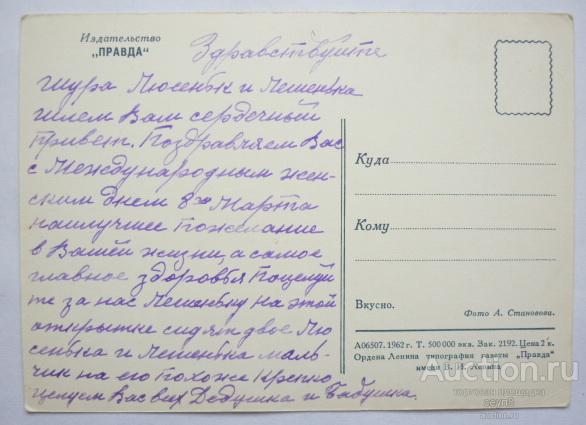 Издательство
„ПРАВДА“
Здравствуйте
Шура Люсеньк и Лешенька
шлем Вам сердечный
привет. Поздравляем Вас
с Международным жен-
ским днем 8го Марта
наилучшее пожелание
в Вашей жизни, а самое
главное здоровья Поцелуй
те за нас Лешеньку на этой
открытке сидят двое Лю
сенька и Лешенька маль-
чик на его похож Крепко
целуем Вас вих Дедушка и Бабушка.
Куда
Кому
Вкусно.
Фото А. Становова.
А06507. 1962 г. Т. 500 000 экз. Зак. 2192. Цена 2 к.
Ордена Ленина типография газеты „Правда“
имени В. И. Ленина
Auction.ru
торговая площадка
auction.ru